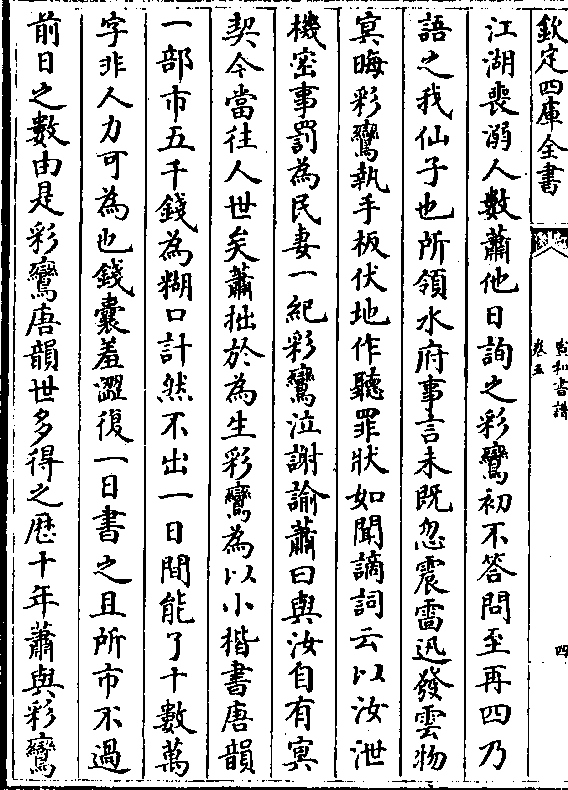 欽定四庫全書
宣和書譜
卷五
四
江湖喪溺人數蕭他日詢之彩鸞初不答問至再四乃
語之我仙子也所領水府事言未既忽震雷迅發雲物
冥晦彩鸞執手板伏地作聽罪狀如聞謫詞云以汝泄
機密事罰為民妻一紀彩鸞泣謝諭蕭曰與汝自有冥
契今當往人世矣蕭拙於為生彩鸞為以小楷書唐韻
一部市五千錢為糊口計然不出一日間能了十數萬
字非人力可為也錢囊羞澀復一日書之且所市不過
前日之數由是彩鸞唐韻世多得之歴十年蕭與彩鸞